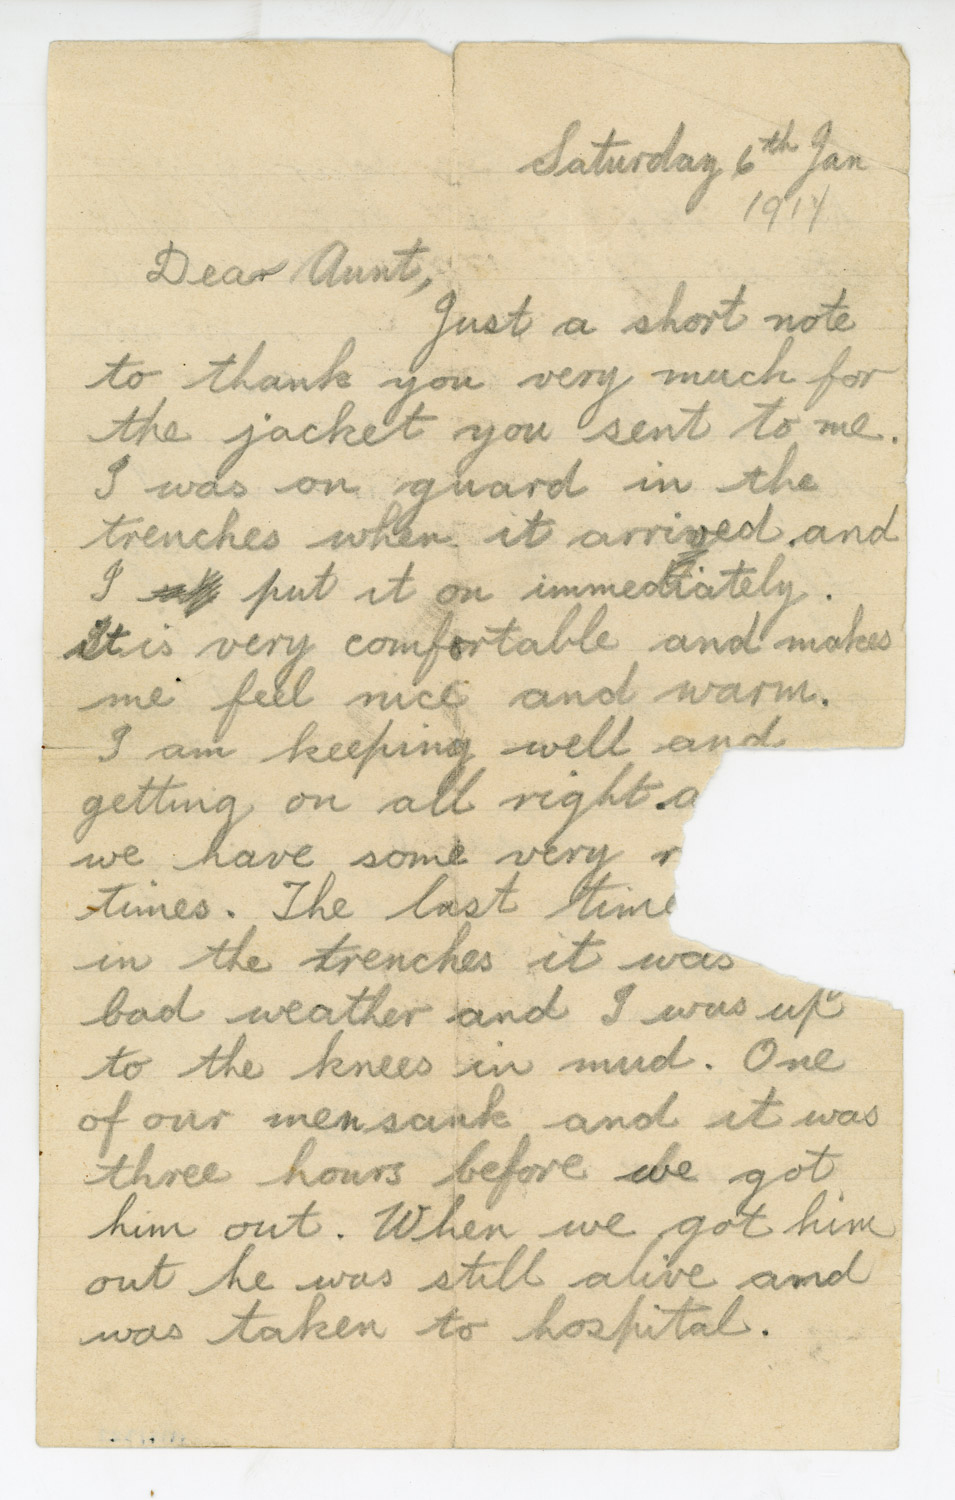 Saturday 6th Jan
191
Dear Aunt,
Just a short note
to thank you very much for
the jacket you sent to me.
I was on guard in the
trenches when it arrived and
I put it on immediately.
It is very comfortable and makes
me feel nice and warm.
I am keeping well and
getting on all right. a
we have some very r
times. The last time
in the trenches it was
bad weather and I was up
to the knees in mud. One
of our men sank and it was
three hours before we got
him out. When we got him
out he was still alive and
was taken to hospital.